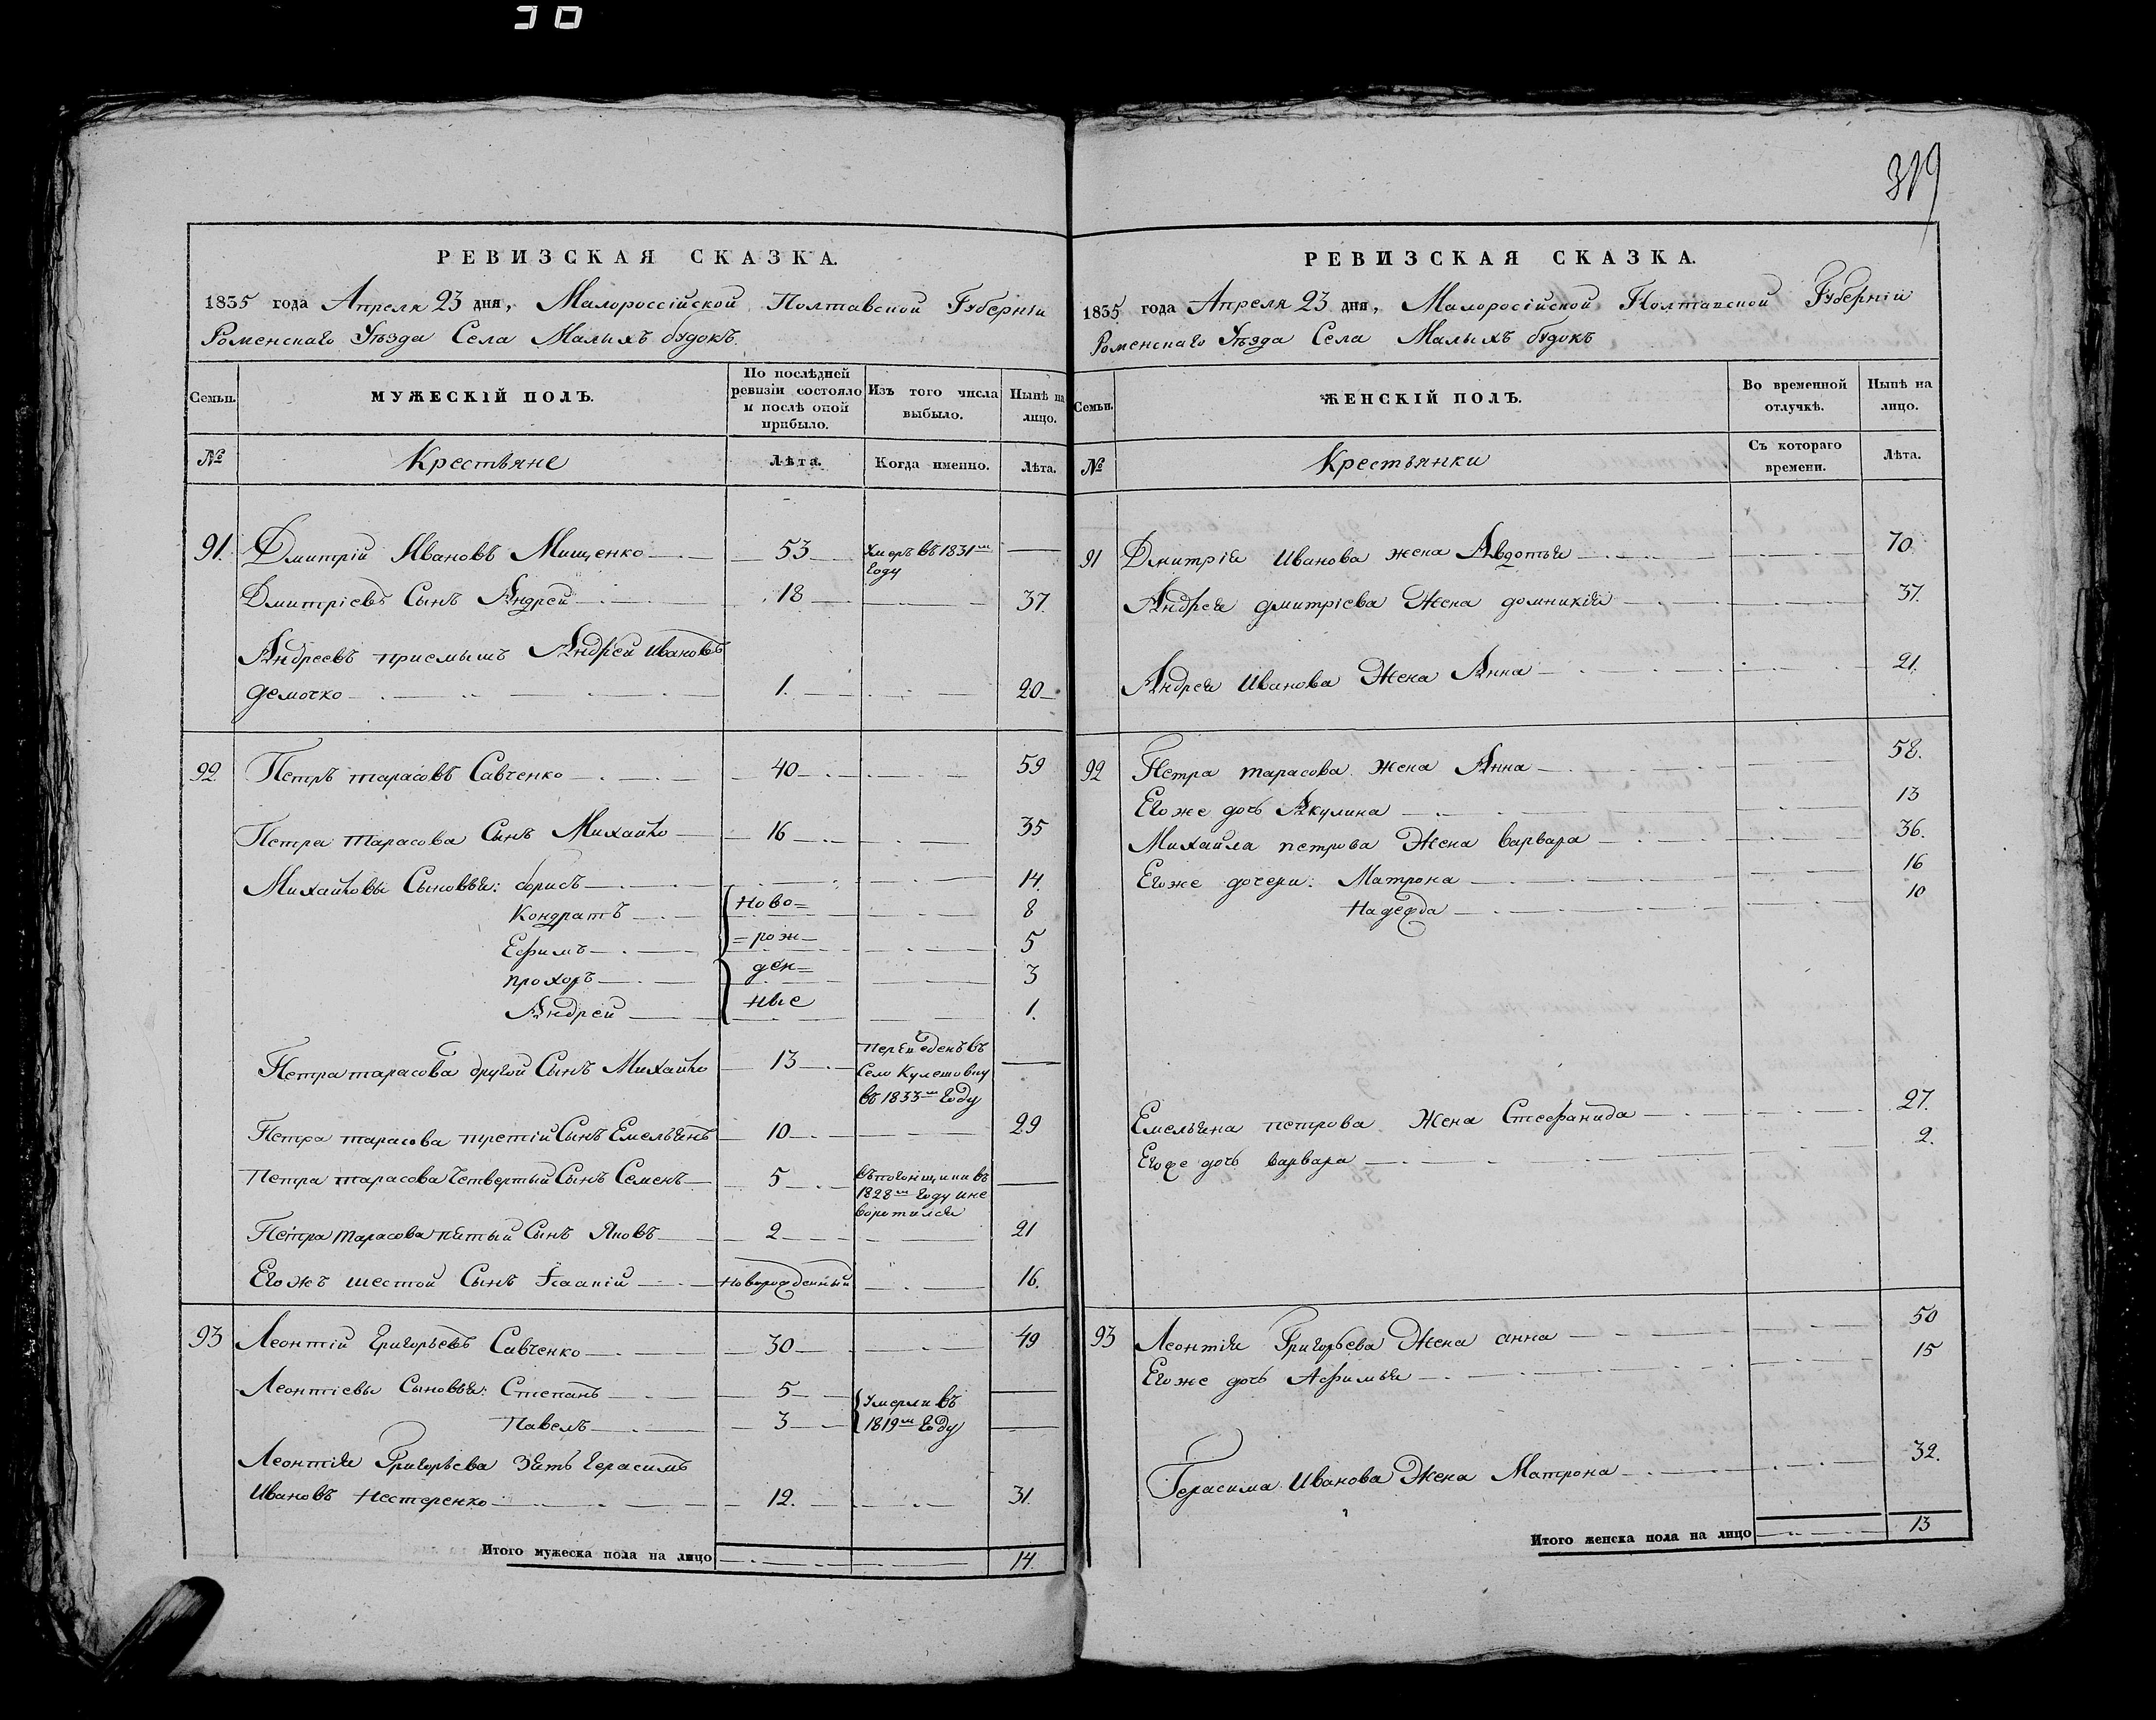 319
РЕВИЗСКАЯ СКАЗКА.
1835 года Апреля 23 дня, Малороссійской Полтавской Губерніи
Роменскаго Уѣзда Села Малыхъ будокъ.
Семьи. МУЖЕСКІЙ ПОЛЪ. По послѣдней ревизіи состояло и послѣ оной прибыло. Изъ того числа выбыло. Нынѣ на лицо.
№ Крестьяне Лѣта. Когда именно. Лѣта.
91. Дмитрій Ивановъ Мищенко 53 Умеръ въ 1831м году
Дмитріевъ Сынъ Андрей 18 37.
Андреевъ приемышъ Андрей Ивановъ
Демочко 1. 20
92. Петръ тарасовъ Савченко 40 59
Петра тарасова Сынъ Михайло 16 35
Михайловы Сыновья: борисъ 14.
Кондратъ Ново= 8
Ефимъ =рож 5
прохоръ ден= 3
Андрей ные 1.
Петра тарасова другой Сынъ Михайло 13 переведенъ въ
Село Кулешовку
въ 1833м Году
Петра тарасова третій Сынъ Емельянъ 10 29
Петра тарасова Четвертый Сынъ Семенъ 5 въ погонщики въ
1828м Году и не
воротился
Петра тарасова пятый Сынъ Яковъ 2 21
Егожъ шестой Сынъ Ісаакій Новорожденный 16.
93 Леонтій Григорьевъ Савченко 30 49
Леонтіевы Сыновья: Степанъ 5 Умерли въ
Павелъ 3 1819м Году
Леонтія Григорьева Зять Герасимъ
Ивановъ Нестеренко 12. 31.
Итого мужеска пола на лицо 14.
РЕВИЗСКАЯ СКАЗКА.
1835 года Апреля 23 дня, Малоросійской Полтавской Губерній
Роменскаго Уѣзда Села Малыхъ будокъ
Семьи. ЖЕНСКІЙ ПОЛЪ. Во временной отлучкѣ. Нынѣ на лицо.
№ Крестьянки Съ котораго времени. Лѣта.
91 Дмитрія Иванова жена Авдотья 70
Андрея дмитріева Жена домникія 37.
Андрея Иванова Жена Анна 21.
92 Петра тарасова жена Анна 58.
Его же дочь Акулина 13
Михайла петрова Жена варвара 36.
Его же дочери: Матрона 16
Надежда 10
Емельяна петрова Жена Стефанида 27.
Егоже дочь варвара 2.
93 Леонтія Григорьева Жена анна 50
Его же дочь Афимья 15
Герасима Иванова Жена Матрона 32.
Итого женска пола на лицо 13